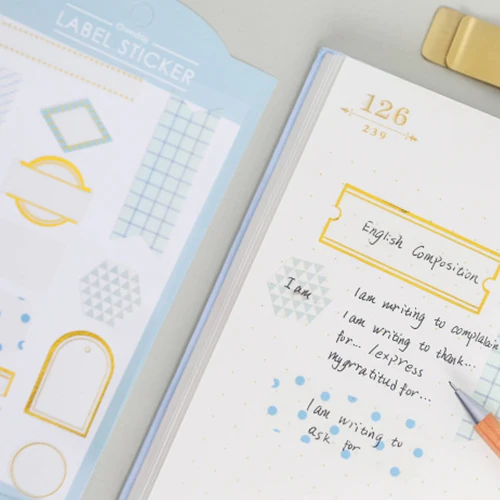 LABEL STICKER
126
239
English Composition
I am
I am writing to complain
I am writing to thank...
for... /express
mygrratitud for...
I am writing to
ask for